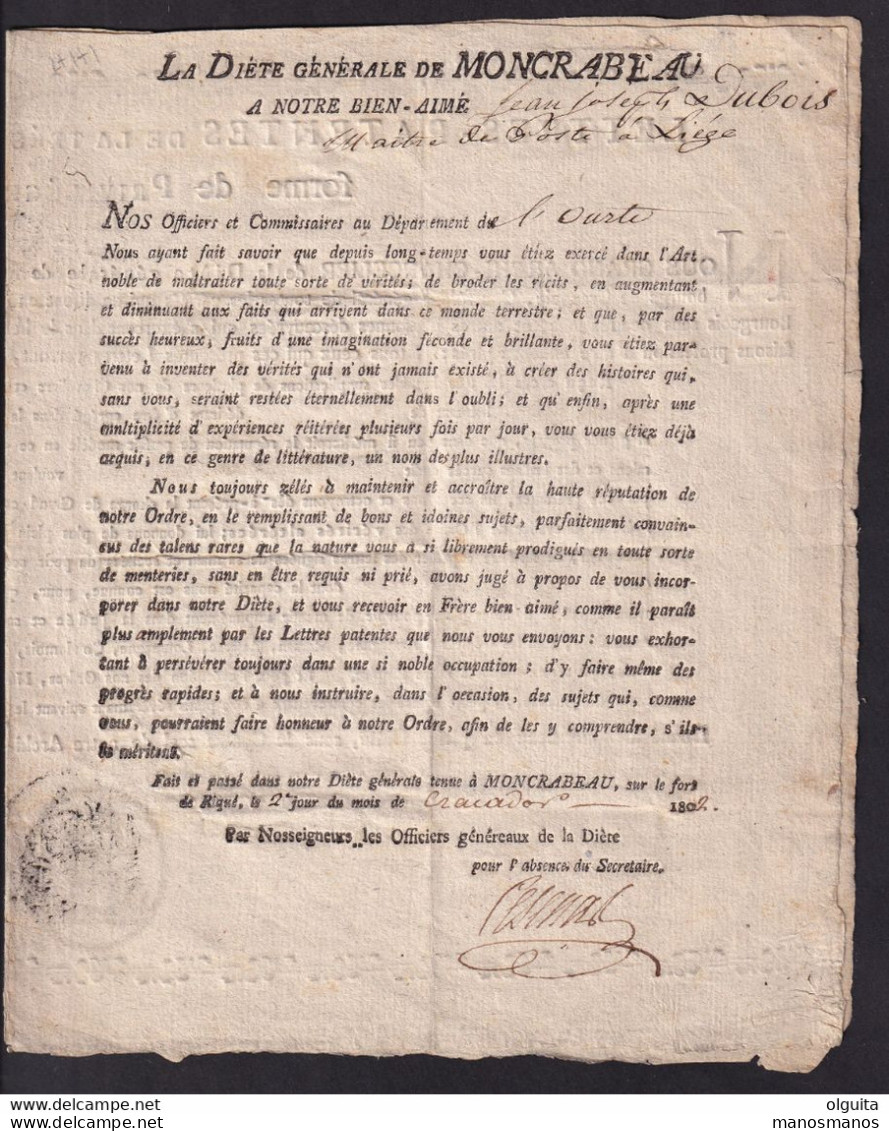 LA DIÈTE GÉNÉRALE DE MONCRABEAU
A NOTRE BIEN-AIMÉ Jean joseph Dubois
Maitre de Poste à Liége
NOS Officiers et Commissaires au Département de l'ourte
Nous ayant fait savoir que depuis long-temps vous étiez exercé dans l'Art
noble de maltraiter toute sorte de vérités; de broder les récits, en augmentant
et diminuant aux faits qui arrivent dans ce monde terrestre; et que, par des
succès heureux, fruits d'une imagination féconde et brillante, vous étiez par-
venu à inventer des vérités qui n'ont jamais existé, à créer des histoires qui,
sans vous, seraint restées éternellement dans l'oubli; et qu'enfin, après une
multiplicité d'expériences réitérées plusieurs fois par jour, vous vous étiez déjà
acquis, en ce genre de littérature, un nom des plus illustres.
Nous toujours zélés à maintenir et accroître la haute réputation de
notre Ordre, en le remplissant de bons et idoines sujets, parfaitement convain-
cus des talens rares que la nature vous a si librement prodigués en toute sorte
de menteries, sans en être requis ni prié, avons jugé à propos de vous incor-
porer dans notre Diète, et vous recevoir en Frère bien-aimé, comme il paraît
plus amplement par les Lettres patentes que nous vous envoyons: vous exhor-
tant à persévérer toujours dans une si noble occupation; d'y faire même des
progrès rapides; et à nous instruire, dans l'occasion, des sujets qui, comme
vous, pourraient faire honneur à notre Ordre, afin de les y comprendre, s'ils
le méritent.
Fait et passé dans notre Diète générale tenue à MONCRABEAU, sur le fort
de Riqué, le 2e jour du mois de Cracador 1802.
Par Nosseigneurs les Officiers généreaux de la Diète
pour l'absence du Secretaire.
olguita
manosmanos